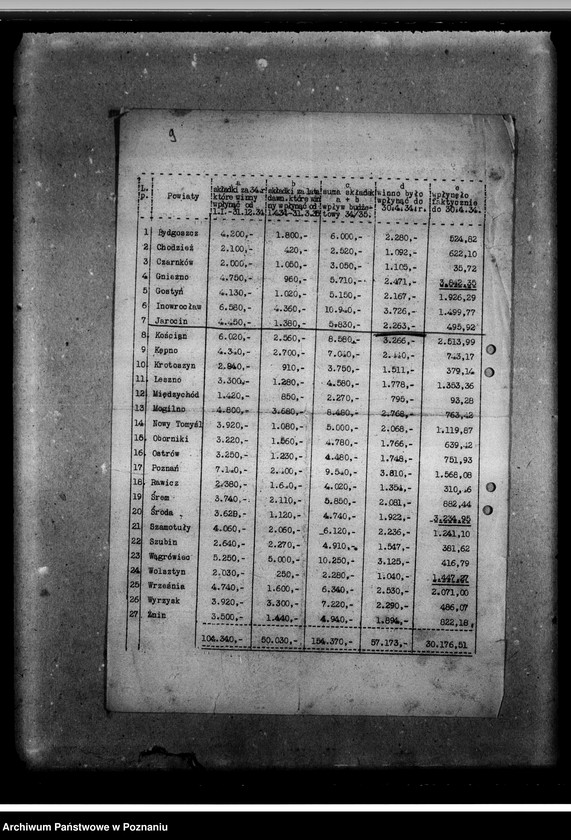 9
L. p. | Powiaty | a składki za 34.r które winny wpłynąć od 1.I.-31.12.34 | składki za lata dawn. które win ny wpłynąć od 1.4.34-31.3.35 | c suma składek a + b wpływ budże- towy 34/35. | d winno było wpłynąć do 30.4.34.r. | e wpłynęło faktycznie do 30.4.34.
1 Bydgoszcz 4.200,- 1.800,- 6.000,- 2.280,- 524,82
2 Chodzież 2.100,- 420,- 2.520,- 1.092,- 622,10
3 Czarnków 2.000,- 1.050,- 3.050,- 1.105,- 35,72
4 Gniezno 4.750,- 960,- 5.710,- 2.471,-
5 Gostyń 4.130,- 1.020,- 5.150,- 2.167,- 1.926,29
6 Inowrocław 6.580,- 4.360,- 10.940,- 3.726,- 1.499,77
7 Jarocin 4.450,- 1.380,- 5.830,- 2.263,- 495,92
8 Kościan 6.020,- 2.560,- 8.580,- 3.266,- 2.513,99
9 Kępno 4.340,- 2.700,- 7.040,- 743,17
10 Krotoszyn 2.840,- 910,- 3.750,- 1.511,- 379,14
11 Leszno 3.300,- 1.280,- 4.580,- 1.778,- 1.353,36
12 Międzychód 1.420,- 850,- 2.270,- 795,- 93,28
13 Mogilno 4.800,- 3.680,- 8.480,- 2.768,- 763,42
14 Nowy Tomyśl 3.920,- 1.080,- 5.000,- 2.068,- 1.119,87
15 Oborniki 3.220,- 1.560,- 4.780,- 1.766,- 639,42
16 Ostrów 3.250,- 1.230,- 4.480,- 1.748,- 751,93
17 Poznań 7.140,- 2.400,- 9.540,- 3.810,- 1.568,08
18 Rawicz 2.380,- 1.640,- 4.020,- 1.354,-
19 Śrem 3.740,- 2.110,- 5.850,- 2.081,- 882,44
20 Środa 3.620,- 1.120,- 4.740,- 1.922,- 3.234,95
21 Szamotuły 4.060,- 2.060,- 6.120,- 2.236,- 1.241,10
22 Szubin 2.640,- 2.270,- 4.910,- 1.547,- 381,62
23 Wągrówiec 5.250,- 5.000,- 10.250,- 3.125,- 416,79
24 Wolsztyn 2.030,- 250,- 2.280,- 1.040,-
25 Września 4.740,- 1.600,- 6.340,- 2.530,- 2.071,00
26 Wyrzysk 3.920,- 3.300,- 7.220,- 2.290,- 486,07
27 Żnin 3.500,- 1.440,- 4.940,- 1.894,- 822,18
104.340,- 50.030,- 154.370,- 57.173,- 30.176,51
Archiwum Państwowe w Poznaniu